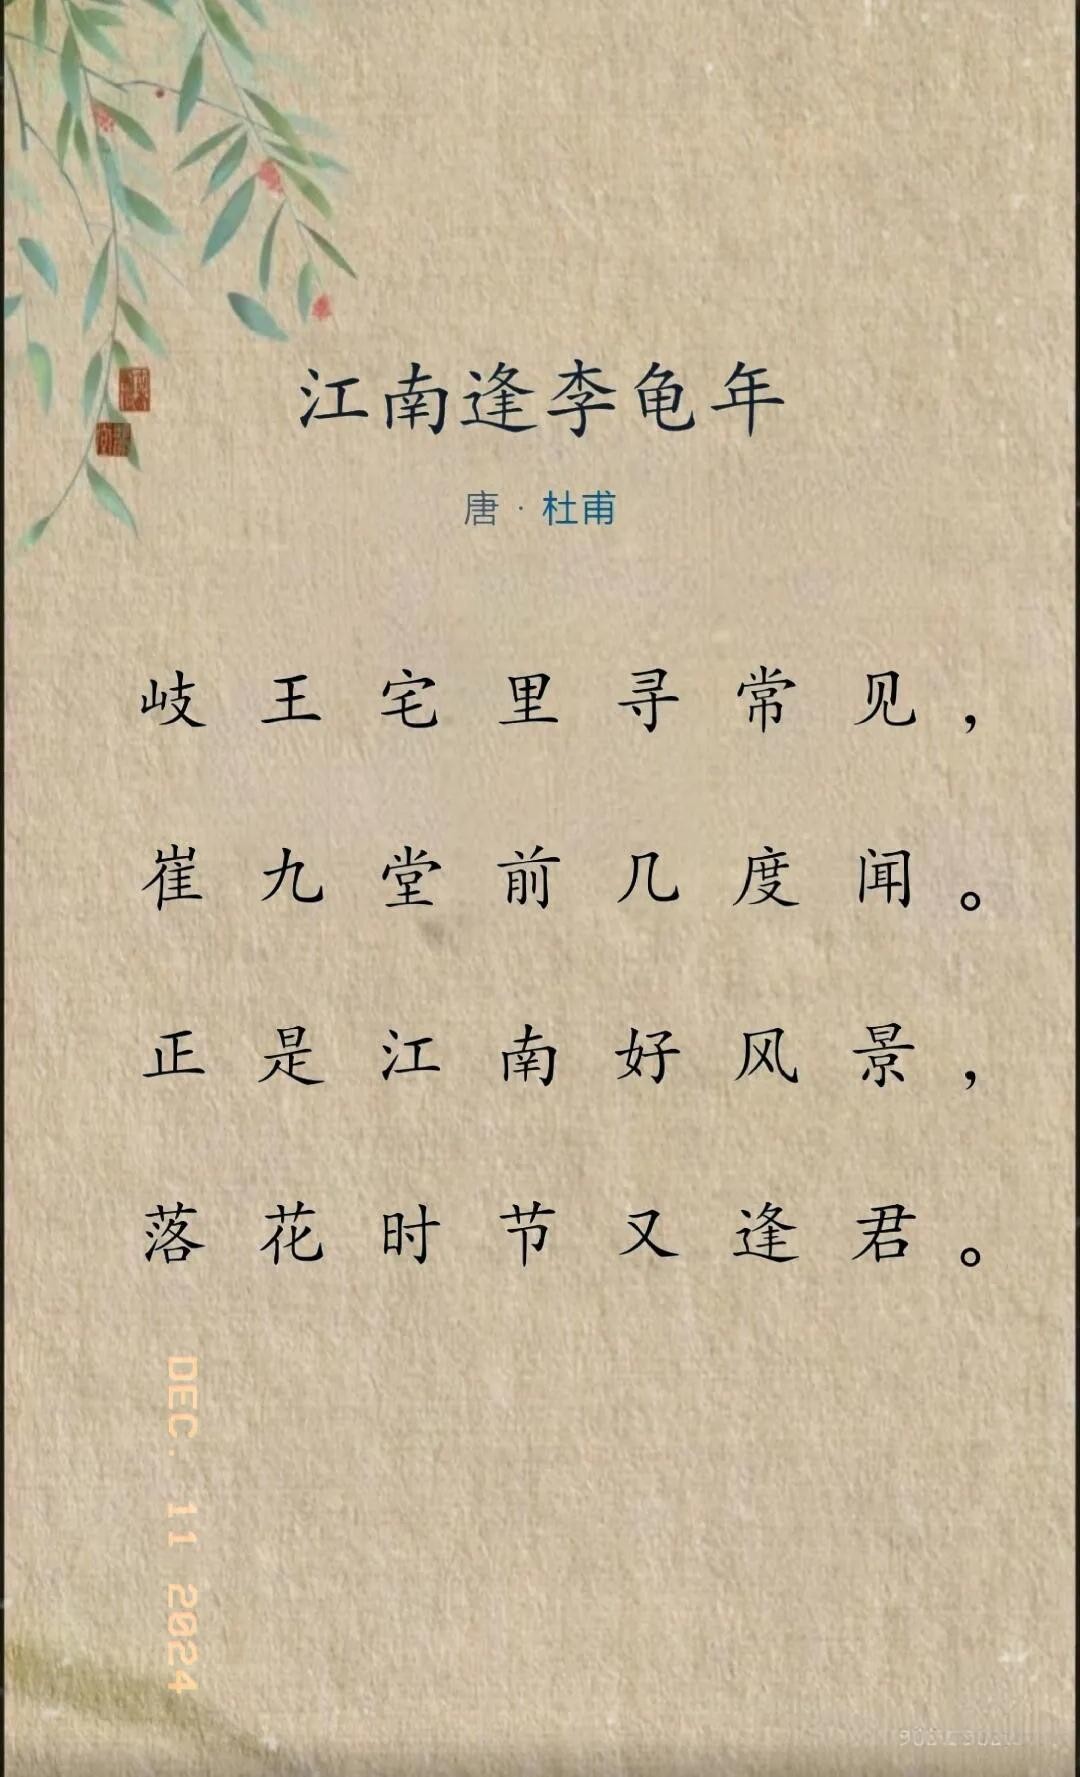 江南逢李龟年
唐·杜甫
岐王宅里寻常见，
崔九堂前几度闻。
正是江南好风景，
落花时节又逢君。
DEC. 11 2024